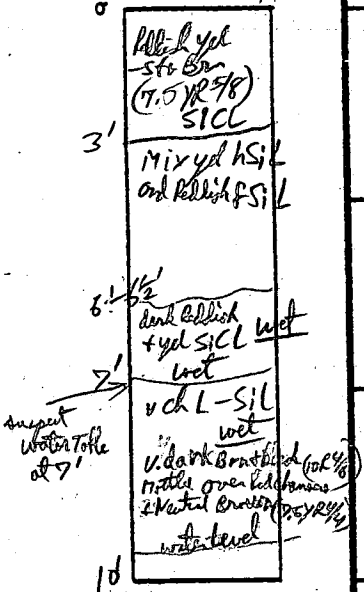 0
Reddish yel
-Str Brn
(7.5 YR 5/8)
SICL
3'
Mix yel hSiL
and Reddish fSiL
6'
dark Reddish
+ yel SiCL wet
wet
7'
v ch L-SiL
wet
suspect
water Table
at 7'
v. dark Brn + bl red (10R 4/6)
mottle over Red
& Neutral Brown (7.5YR 4/4)
water level
10'